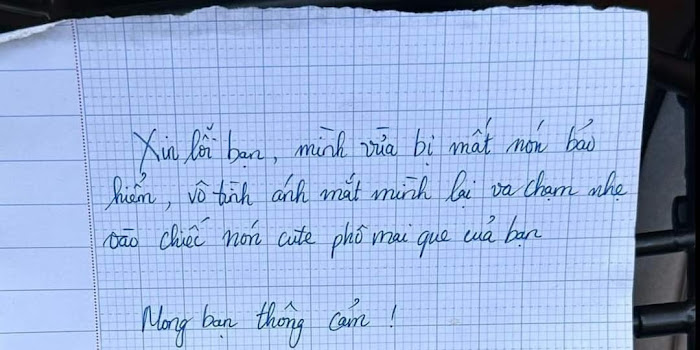 Xin lỗi bạn, mình vừa bị mất nón bảo
hiểm, vô tình ánh mắt mình lại va chạm nhẹ
vào chiếc nón cute phô mai que của bạn
Mong bạn thông cảm !